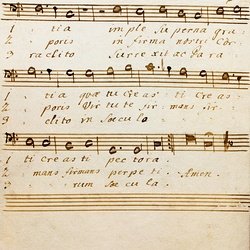 1 tia imple superna gra
2 poris infirma nostri Cor
3 raclito surrexit ac para
1 tia quae tu Creasti Creas
2 poris Virtute firmans fir
3 clito in saecula
1 ti Creasti pectora.
2 mans firmans perpeti Amen.
3 rum saecula.